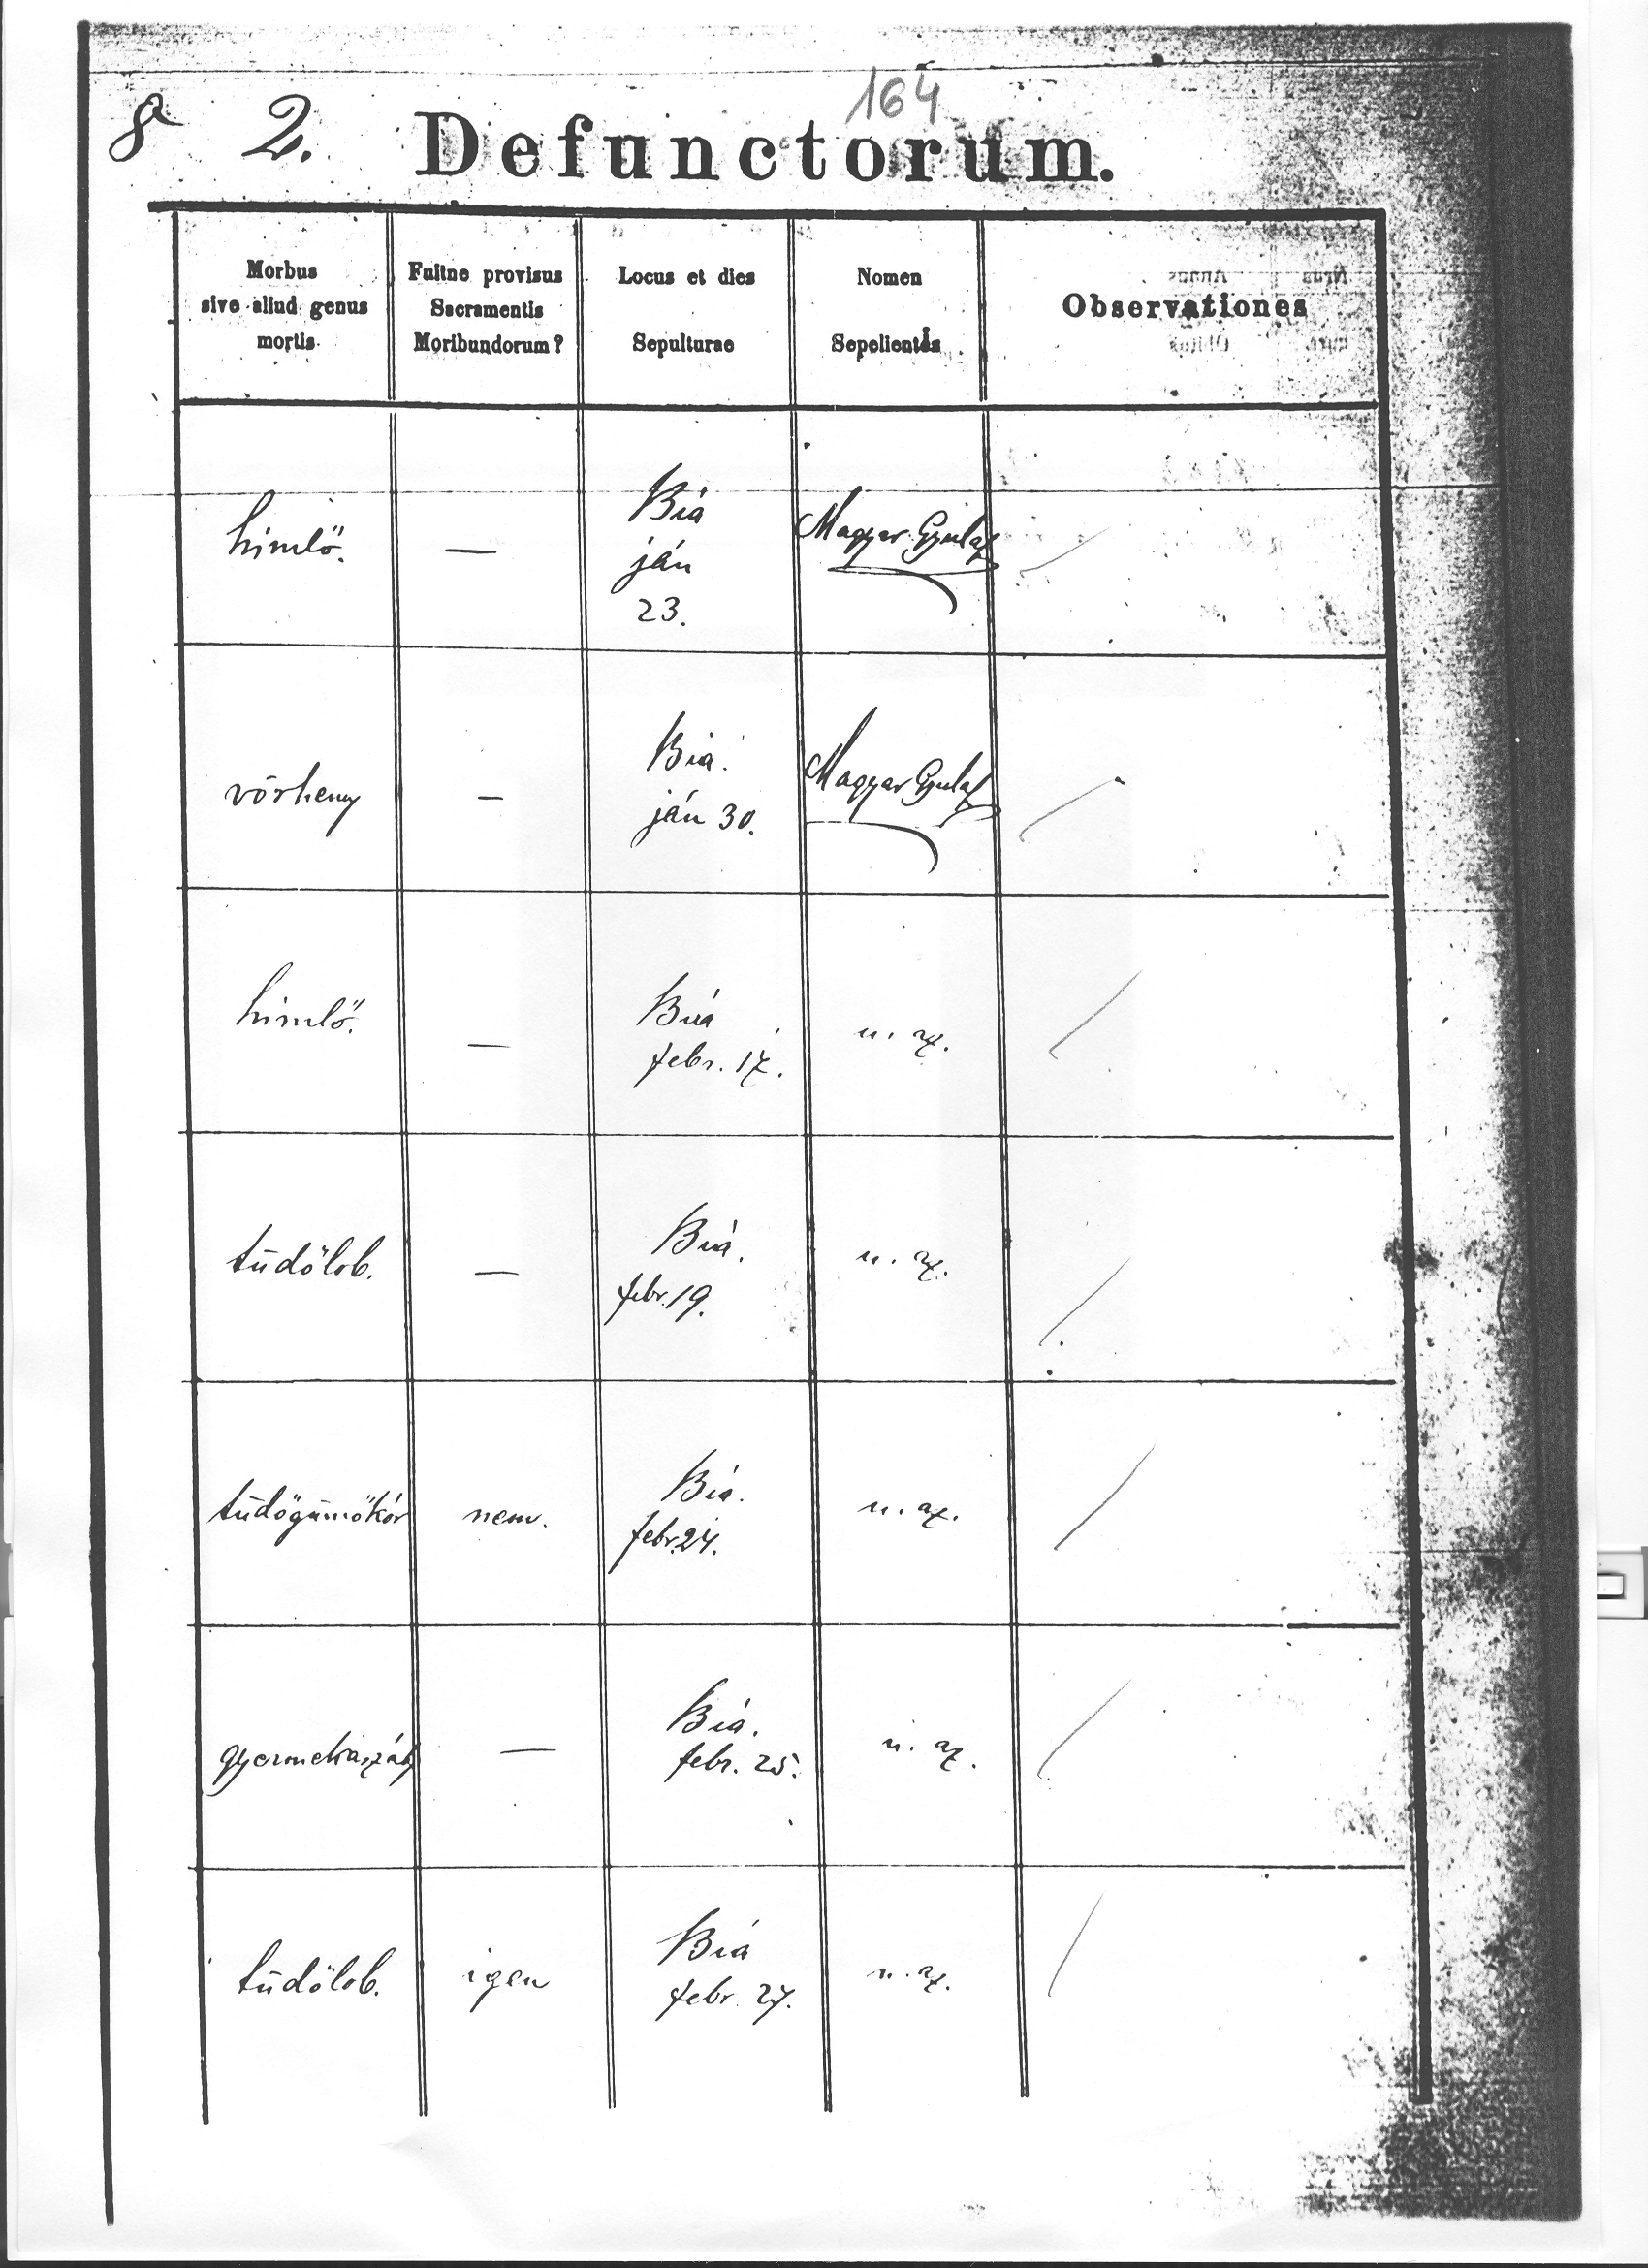 164
8 2. Defunctorum.
Morbus
sive aliud genus
mortis
Fuitne provisus
Sacramentis
Moribundorum?
Locus et dies
Sepulturae
Nomen
Sepelientis
Observationes
himlő.
—
Bia
ján
23.
Magyar Gyula
vörheny
—
Bia.
ján 30.
Magyar Gyula
himlő.
—
Bia
febr. 17.
u. az.
tüdőlob.
—
Bia.
febr. 19.
u. az.
tüdőgümőkór
nem.
Bia.
febr. 24.
u. az.
gyermekaszály
—
Bia.
febr. 25.
u. az.
tüdőlob.
igen
Bia
febr. 27.
u. az.